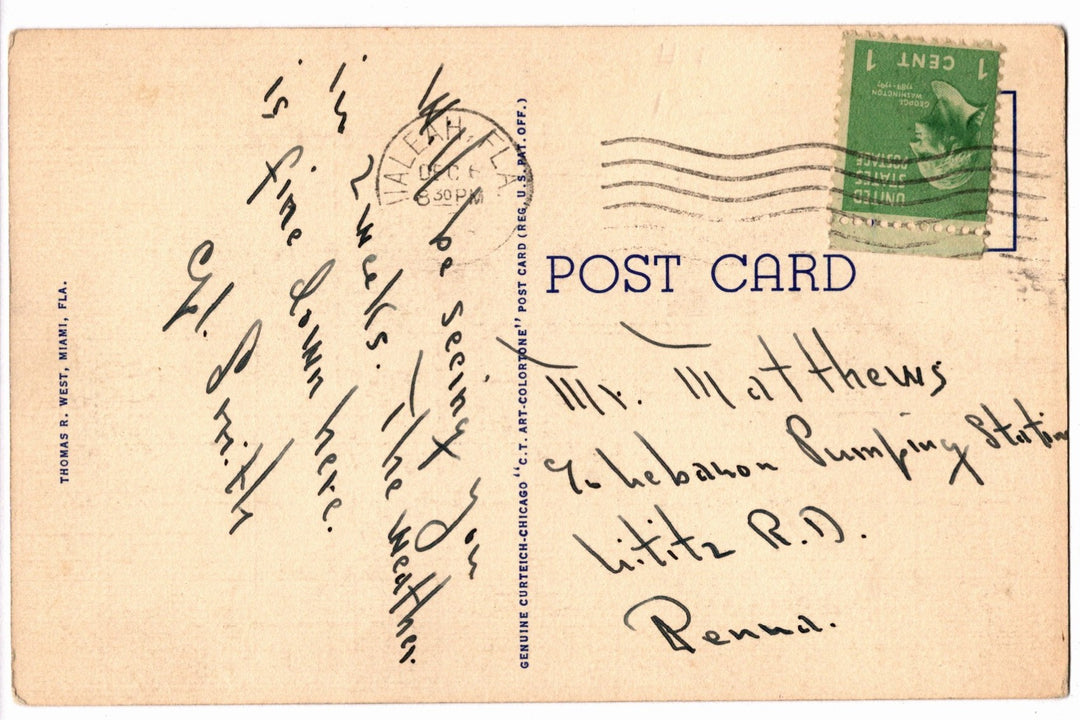 Will be seeing you
in 2 weeks. The weather
is fine down here.
Smith
HIALEAH, FLA
DEC 6
8 30 PM
1 CENT 1
GEORGE
WASHINGTON
1789-1797
UNITED
STATES
POSTAGE
POST CARD
Mr. Matthews
℅ Lebanon Pumping Station
Lititz R.D.
Penna.
GENUINE CURTEICH-CHICAGO "C.T. ART-COLORTONE" POST CARD (REG. U.S. PAT. OFF.)
THOMAS R. WEST, MIAMI, FLA.